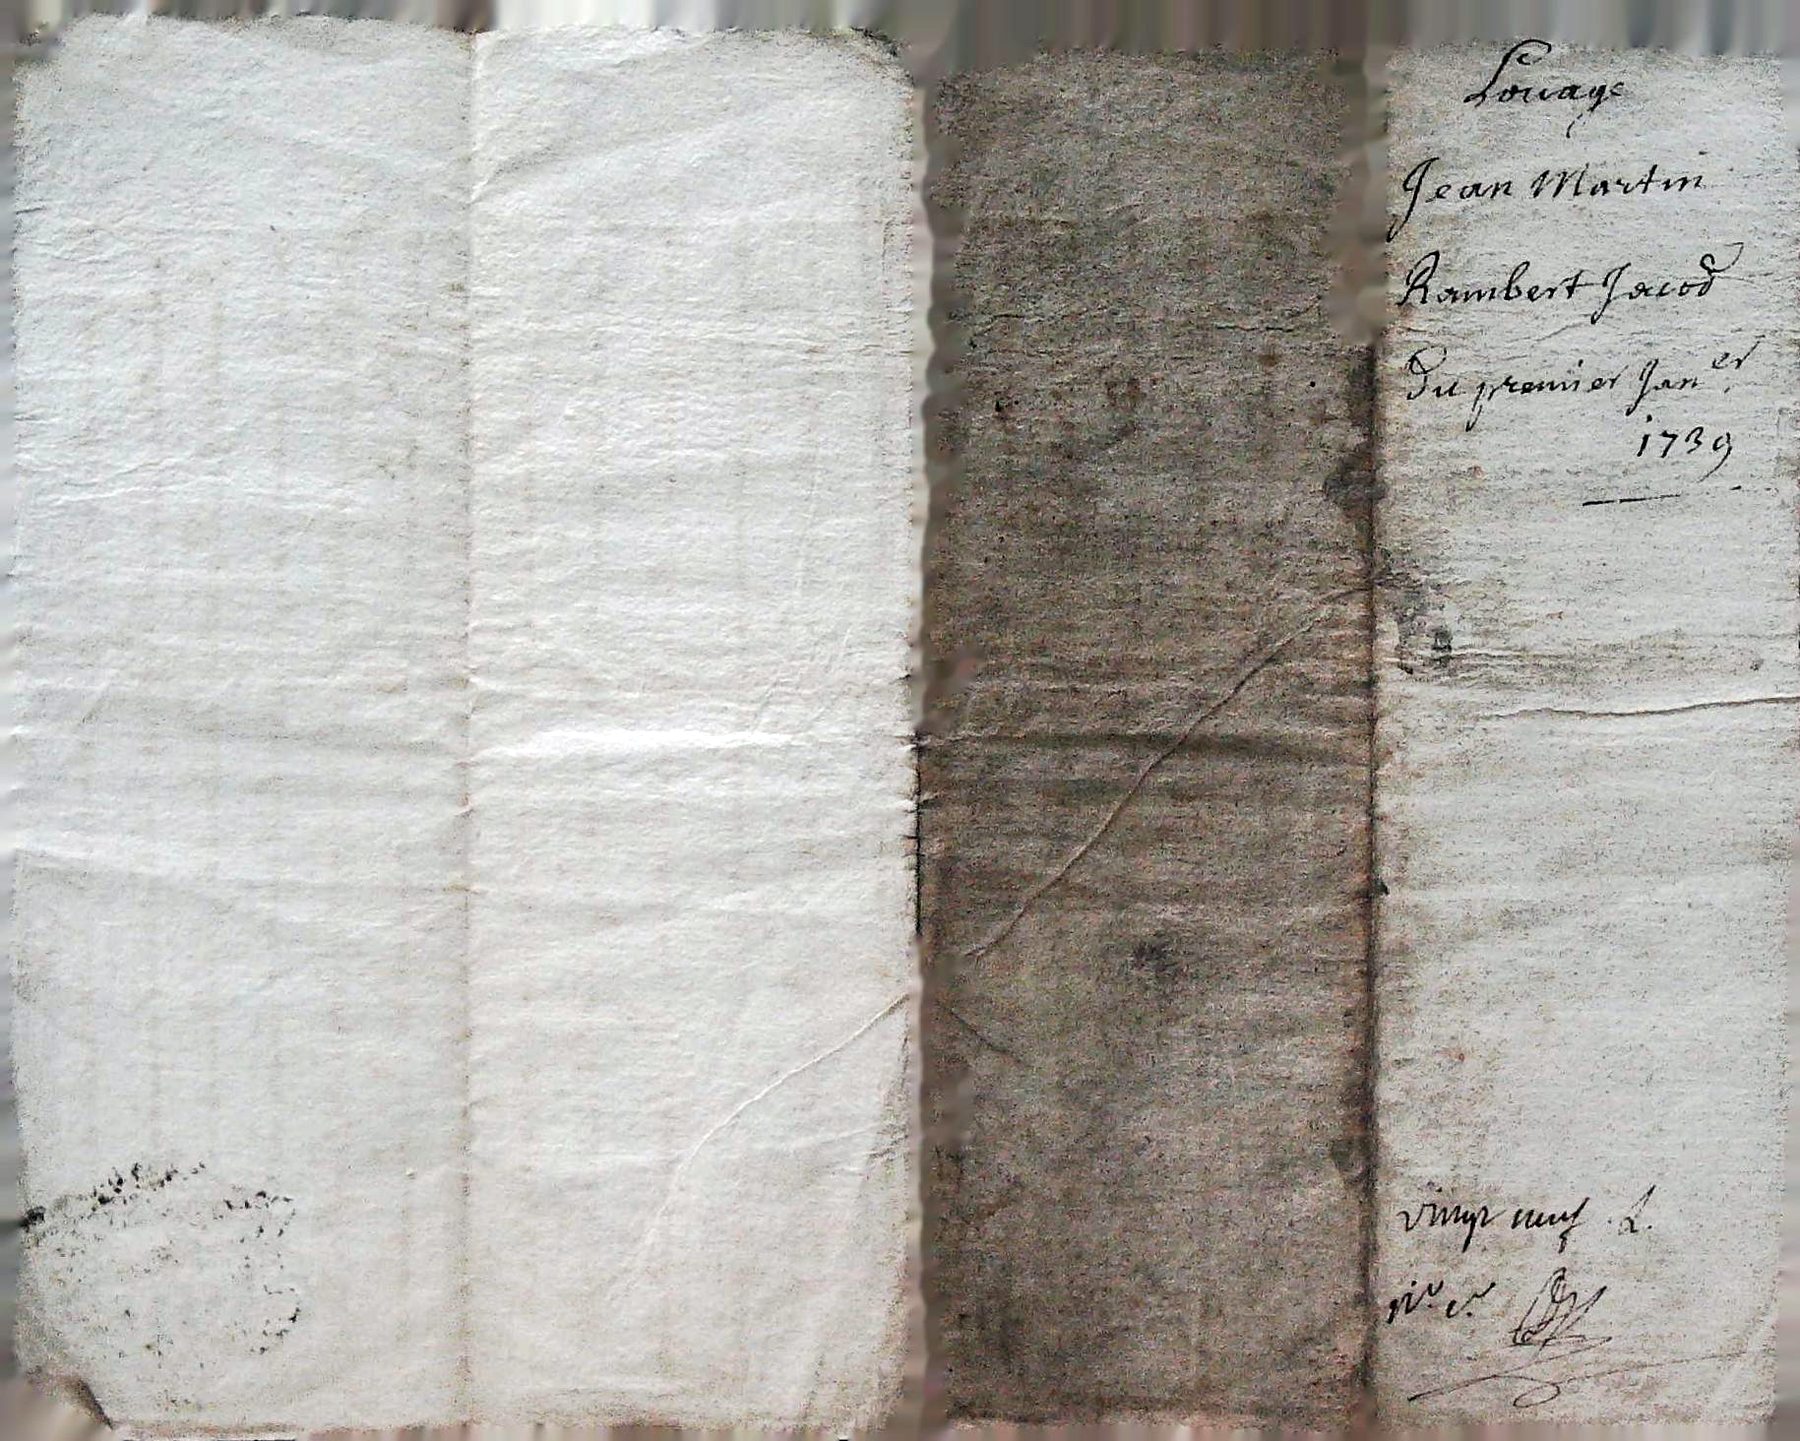 Louage
Jean Martin
Rambert Jacod
Du premier Jan.er
1739
vingt neuf L.